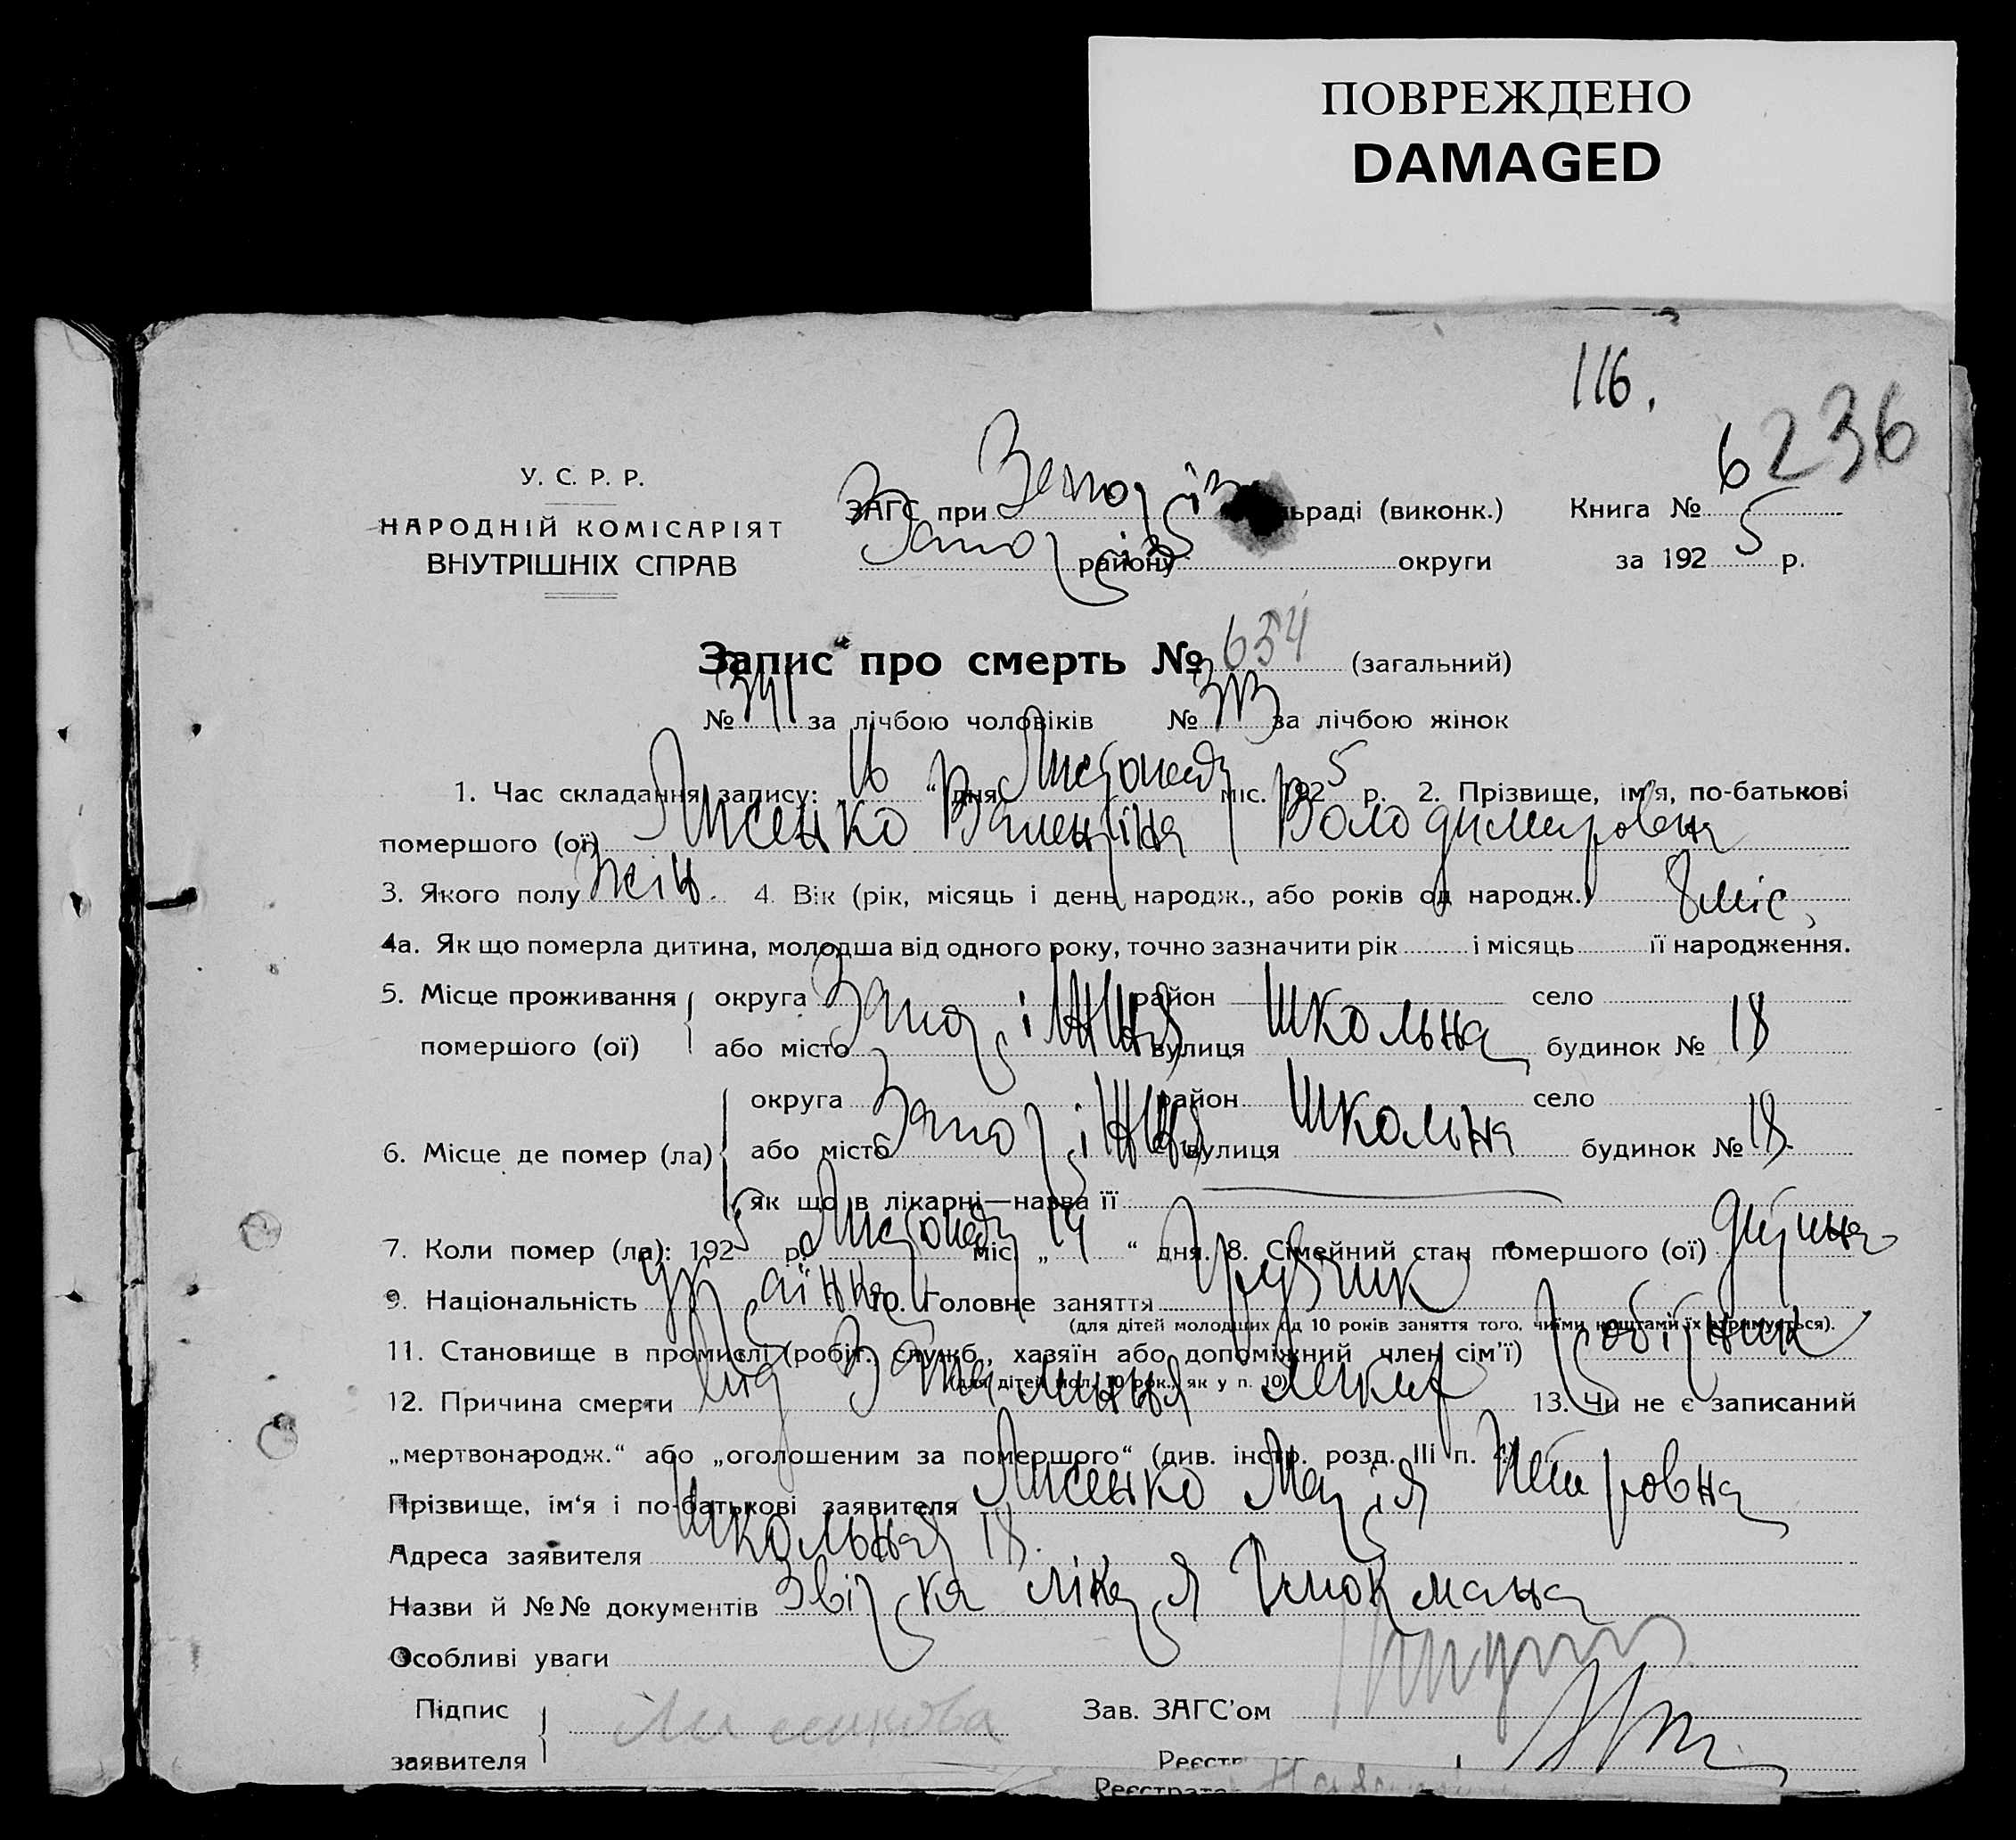 ПОВРЕЖДЕНО
DAMAGED
116.
6236
У. С. Р. Р.
НАРОДНІЙ КОМІСАРІЯТ
ВНУТРІШНІХ СПРАВ
ЗАГС при Запоріз ьраді (виконк.) Книга №
Запоріз району округи за 1925 р.
Запис про смерть № 654 (загальний)
№ 341 за лічбою чоловіків № 313 за лічбою жінок
1. Час складання запису: 16 “ дня Листопада міс. 1925 р. 2. Прізвище, ім'я, по-батькові
помершого (ої) Лисенко Валентіна Володимировна
3. Якого полу жін. 4. Вік (рік, місяць і день народж., або років од народж.) 8 міс,
4а. Як що померла дитина, молодша від одного року, точно зазначити рік і місяць її народження.
5. Місце проживання помершого (ої) округа район село
або місто Запоріжжя вулиця Школьна будинок № 18
6. Місце де помер (ла) округа район село
або місто Запоріжжя вулиця Школьна будинок № 18.
як що в лікарні—назва її
7. Коли помер (ла): 1925 р. Листопада міс. „ 14 “ дня. 8. Сімейний стан помершого (ої) дитина
9. Національність Українка 10. Головне заняття Грузчик
(для дітей молодших од 10 років заняття того, чиїми коштами їх втримується).
11. Становище в промислі (робіт., служб., хазяїн або допоміжний член сім'ї) Робітник
(для дітей мол. 10 рок., як у п. 10)
12. Причина смерти Від Запалення легких 13. Чи не є записаний
„мертвонародж.“ або „оголошеним за помершого“ (див. інстр. розд. III п. 4)
Прізвище, ім'я і по-батькові заявителя Лисенко Марія Петровна
Адреса заявителя Школьная 18.
Назви й №№ документів Звістка лікаря
Особливі уваги
Підпис Зав. ЗАГС'ом
заявителя